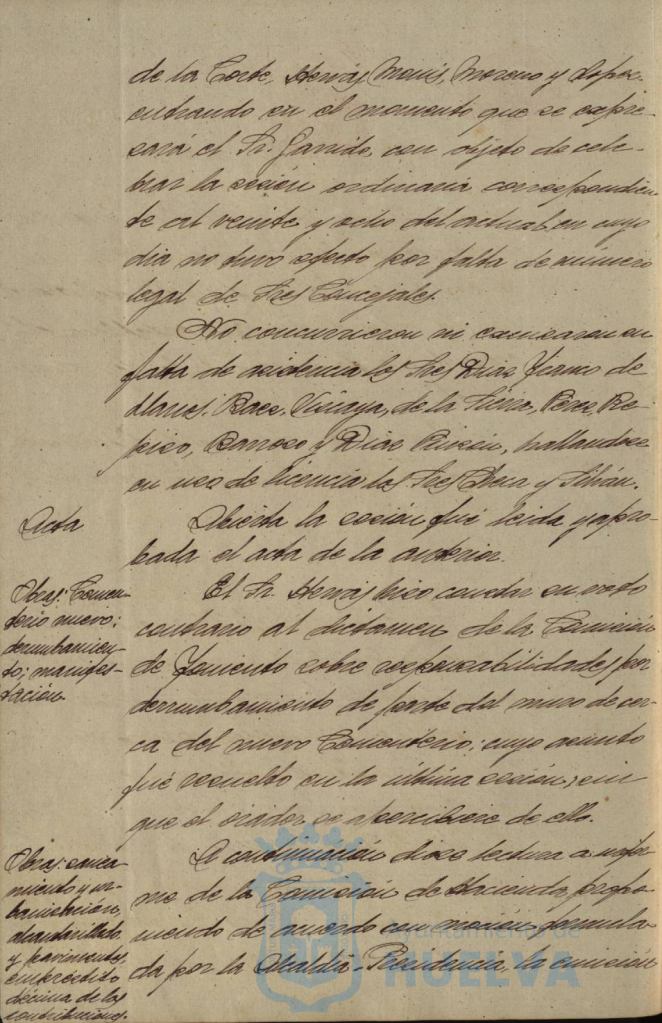 de la Corte, Henríquez, Monís, Moreno y López,
entrando en el momento que se expre-
sará el Sr. Garrido, con objeto de cele-
brar la sesión ordinaria correspondien-
te al veinte y ocho del actual, en cuyo
dia no tuvo efecto por falta de número
legal de Sres Concejales.
No concurrieron ni excusaron su
falta de asistencia los Sres Diaz Franco de
Llanos, Baez, Vizcaya, de la Sierra, Pérez, Re-
piso, Barroso y Diaz Rincón, hallandose
en uso de licencia los Sres y
Acta
Abierta la sesión fué leida y apro-
bada el acta de la anterior.
Obras: Cemen-
terio nuevo:
derrumbamien-
to; manifes-
tación
El Sr. hizo constar su voto
contrario al dictamen de la Comisión
de Fomento sobre responsabilidades por
derrumbamiento de parte del muro de cer-
ca del nuevo Cementerio; cuyo asunto
fué resuelto en la última sesión, sin
que el orador se apercibiese de ello.
Obras: sanea-
miento y ur-
banización,
alcantarillado
y pavimentos,
empréstito
décima de las
contribuciones.
A continuación dióse lectura a infor-
me de la Comisión de Hacienda, propo-
niendo de acuerdo con moción formula-
da por la Alcaldía-Presidencia, la emisión
Ayuntamiento de
HUELVA